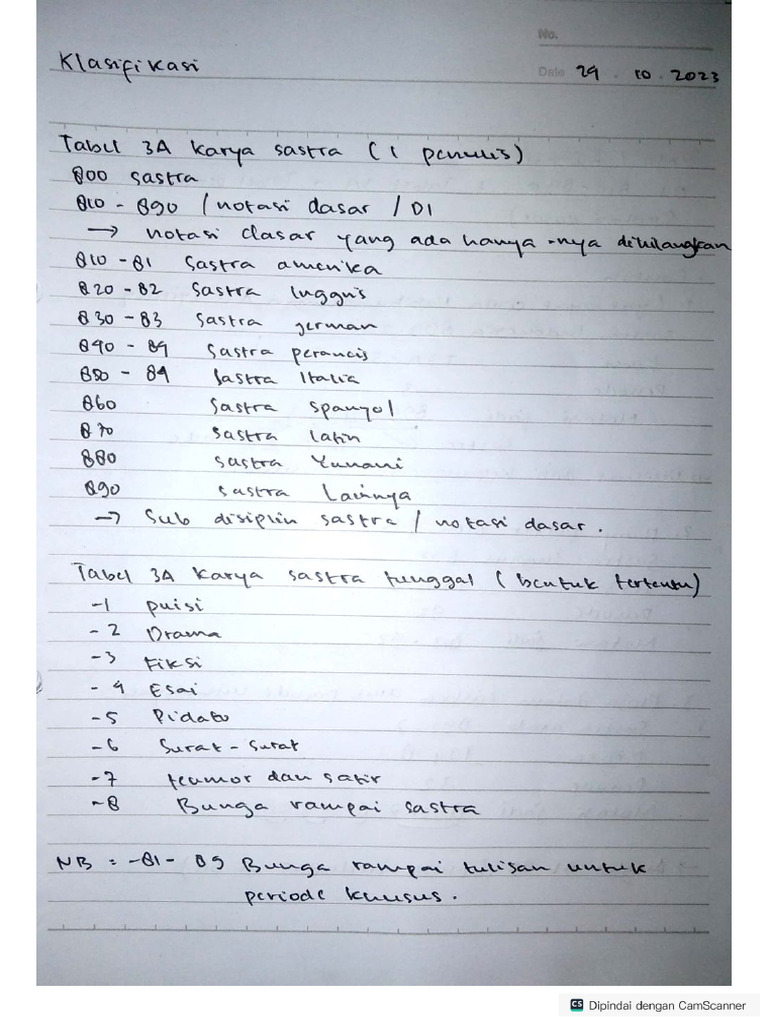 No.
Klasifikasi
Date 29 . 10 . 2023
Tabel 3A karya sastra (1 penulis)
800 sastra
810 - 890 / notasi dasar / D1
→ notasi dasar yang ada hanya -nya dihilangkan
810 - 81 Sastra amerika
820 - 82 Sastra Inggris
830 - 83 Sastra german
840 - 84 Sastra perancis
850 - 84 Sastra Italia
860 Sastra spanyol
870 sastra latin
880 sastra Yunani
890 sastra Lainnya
→ Sub disiplin sastra / notasi dasar.
Tabel 3A karya sastra tunggal (bentuk tertentu)
-1 puisi
-2 Drama
-3 Fiksi
-4 Esai
-5 Pidato
-6 Surat - Surat
-7 Humor dan satir
-8 Bunga rampai sastra
NB = -81 - 89 Bunga rampai tulisan untuk
periode khusus.
CS Dipindai dengan CamScanner